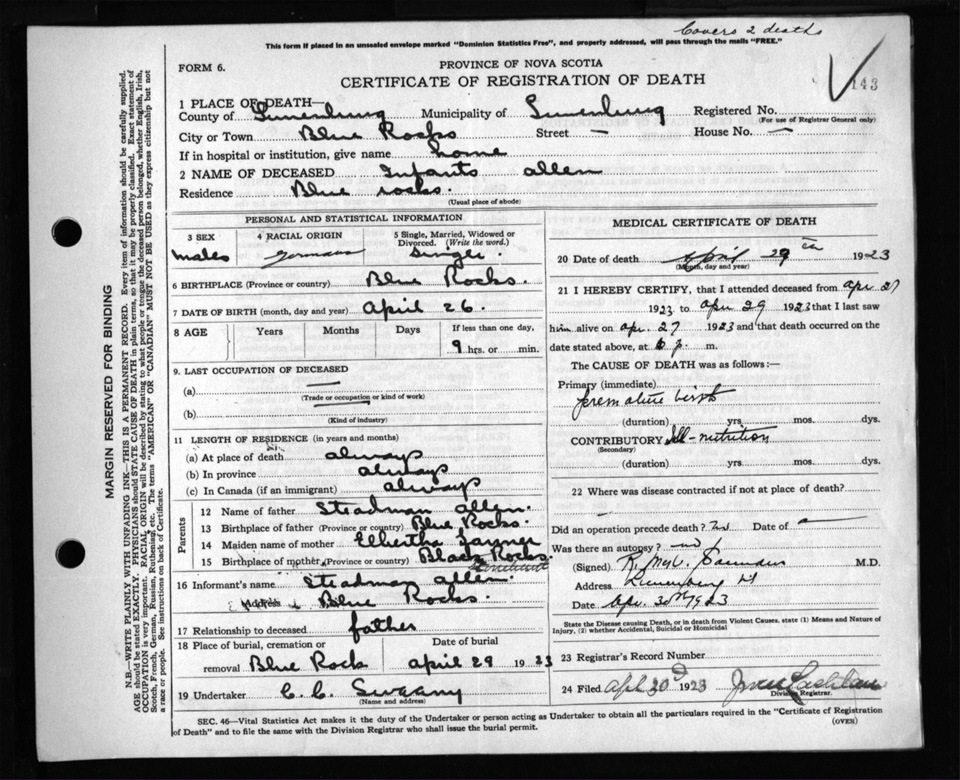 Covers 2 deaths
This form if placed in an unsealed envelope marked "Dominion Statistics Free", and properly addressed, will pass through the mails "FREE."
FORM 6.
PROVINCE OF NOVA SCOTIA
CERTIFICATE OF REGISTRATION OF DEATH
143
1 PLACE OF DEATH—
County of Lunenburg Municipality of Lunenburg Registered No.
(For use of Registrar General only)
City or Town Blue Rocks Street — House No. —
If in hospital or institution, give name home
2 NAME OF DECEASED Infants allen
Residence Blue rocks.
(Usual place of abode)
PERSONAL AND STATISTICAL INFORMATION
3 SEX 4 RACIAL ORIGIN 5 Single, Married, Widowed or Divorced. (Write the word.)
males german single.
6 BIRTHPLACE (Province or country) Blue Rocks.
7 DATE OF BIRTH (month, day and year) April 26.
8 AGE Years Months Days If less than one day,
9 hrs. or min.
9. LAST OCCUPATION OF DECEASED
(a) —
(Trade or occupation or kind of work)
(b) —
(Kind of industry)
11 LENGTH OF RESIDENCE (in years and months)
(a) At place of death always
(b) In province always
(c) In Canada (if an immigrant) always
Parents
12 Name of father Steadman allen.
13 Birthplace of father (Province or country) Blue Rocks.
14 Maiden name of mother Elbertha
15 Birthplace of mother (Province or country) Black Rocks.
16 Informant's name Steadman allen.
Address Blue Rocks.
17 Relationship to deceased father
18 Place of burial, cremation or removal Blue Rock Date of burial april 29 1923
19 Undertaker C. C.
(Name and address)
MEDICAL CERTIFICATE OF DEATH
20 Date of death April 29 th 1923
(Month, day and year)
21 I HEREBY CERTIFY, that I attended deceased from Apr 27
1923 to Apr 29 1923 that I last saw
him alive on Apr. 27 1923 and that death occurred on
date stated above, at 6 p. m.
The CAUSE OF DEATH was as follows:—
Primary (immediate)
Premature birth
(duration) yrs. mos. dys.
CONTRIBUTORY Ill-nutrition
(Secondary)
(duration) yrs. mos. dys.
22 Where was disease contracted if not at place of death?
Did an operation precede death? no Date of —
Was there an autopsy? no
(Signed) M.D.
Address Lunenburg
Date Apr. 30th 1923
State the Disease causing Death, or in death from Violent Causes, state (1) Means and Nature of Injury, (2) whether Accidental, Suicidal or Homicidal
23 Registrar's Record Number
24 Filed April 30 1923
Division Registrar.
SEC. 46—Vital Statistics Act makes it the duty of the Undertaker or person acting as Undertaker to obtain all the particulars required in the "Certificate of Registration of Death" and to file the same with the Division Registrar who shall issue the burial permit.
(OVER)
MARGIN RESERVED FOR BINDING
N.B.—WRITE PLAINLY WITH UNFADING INK—THIS IS A PERMANENT RECORD. Every item of information should be carefully supplied.
AGE should be stated EXACTLY. PHYSICIANS should STATE CAUSE OF DEATH in plain terms, so that it may be properly classified. Exact statement of
OCCUPATION is very important. RACIAL ORIGIN will be described by stating to what people or tongue the deceased person belonged, whether English, Irish,
Scotch, French, German, Russian, Ruthenian, etc. The terms "AMERICAN" OR "CANADIAN" MUST NOT BE USED as they express citizenship but not
a race or people. See instructions on back of Certificate.